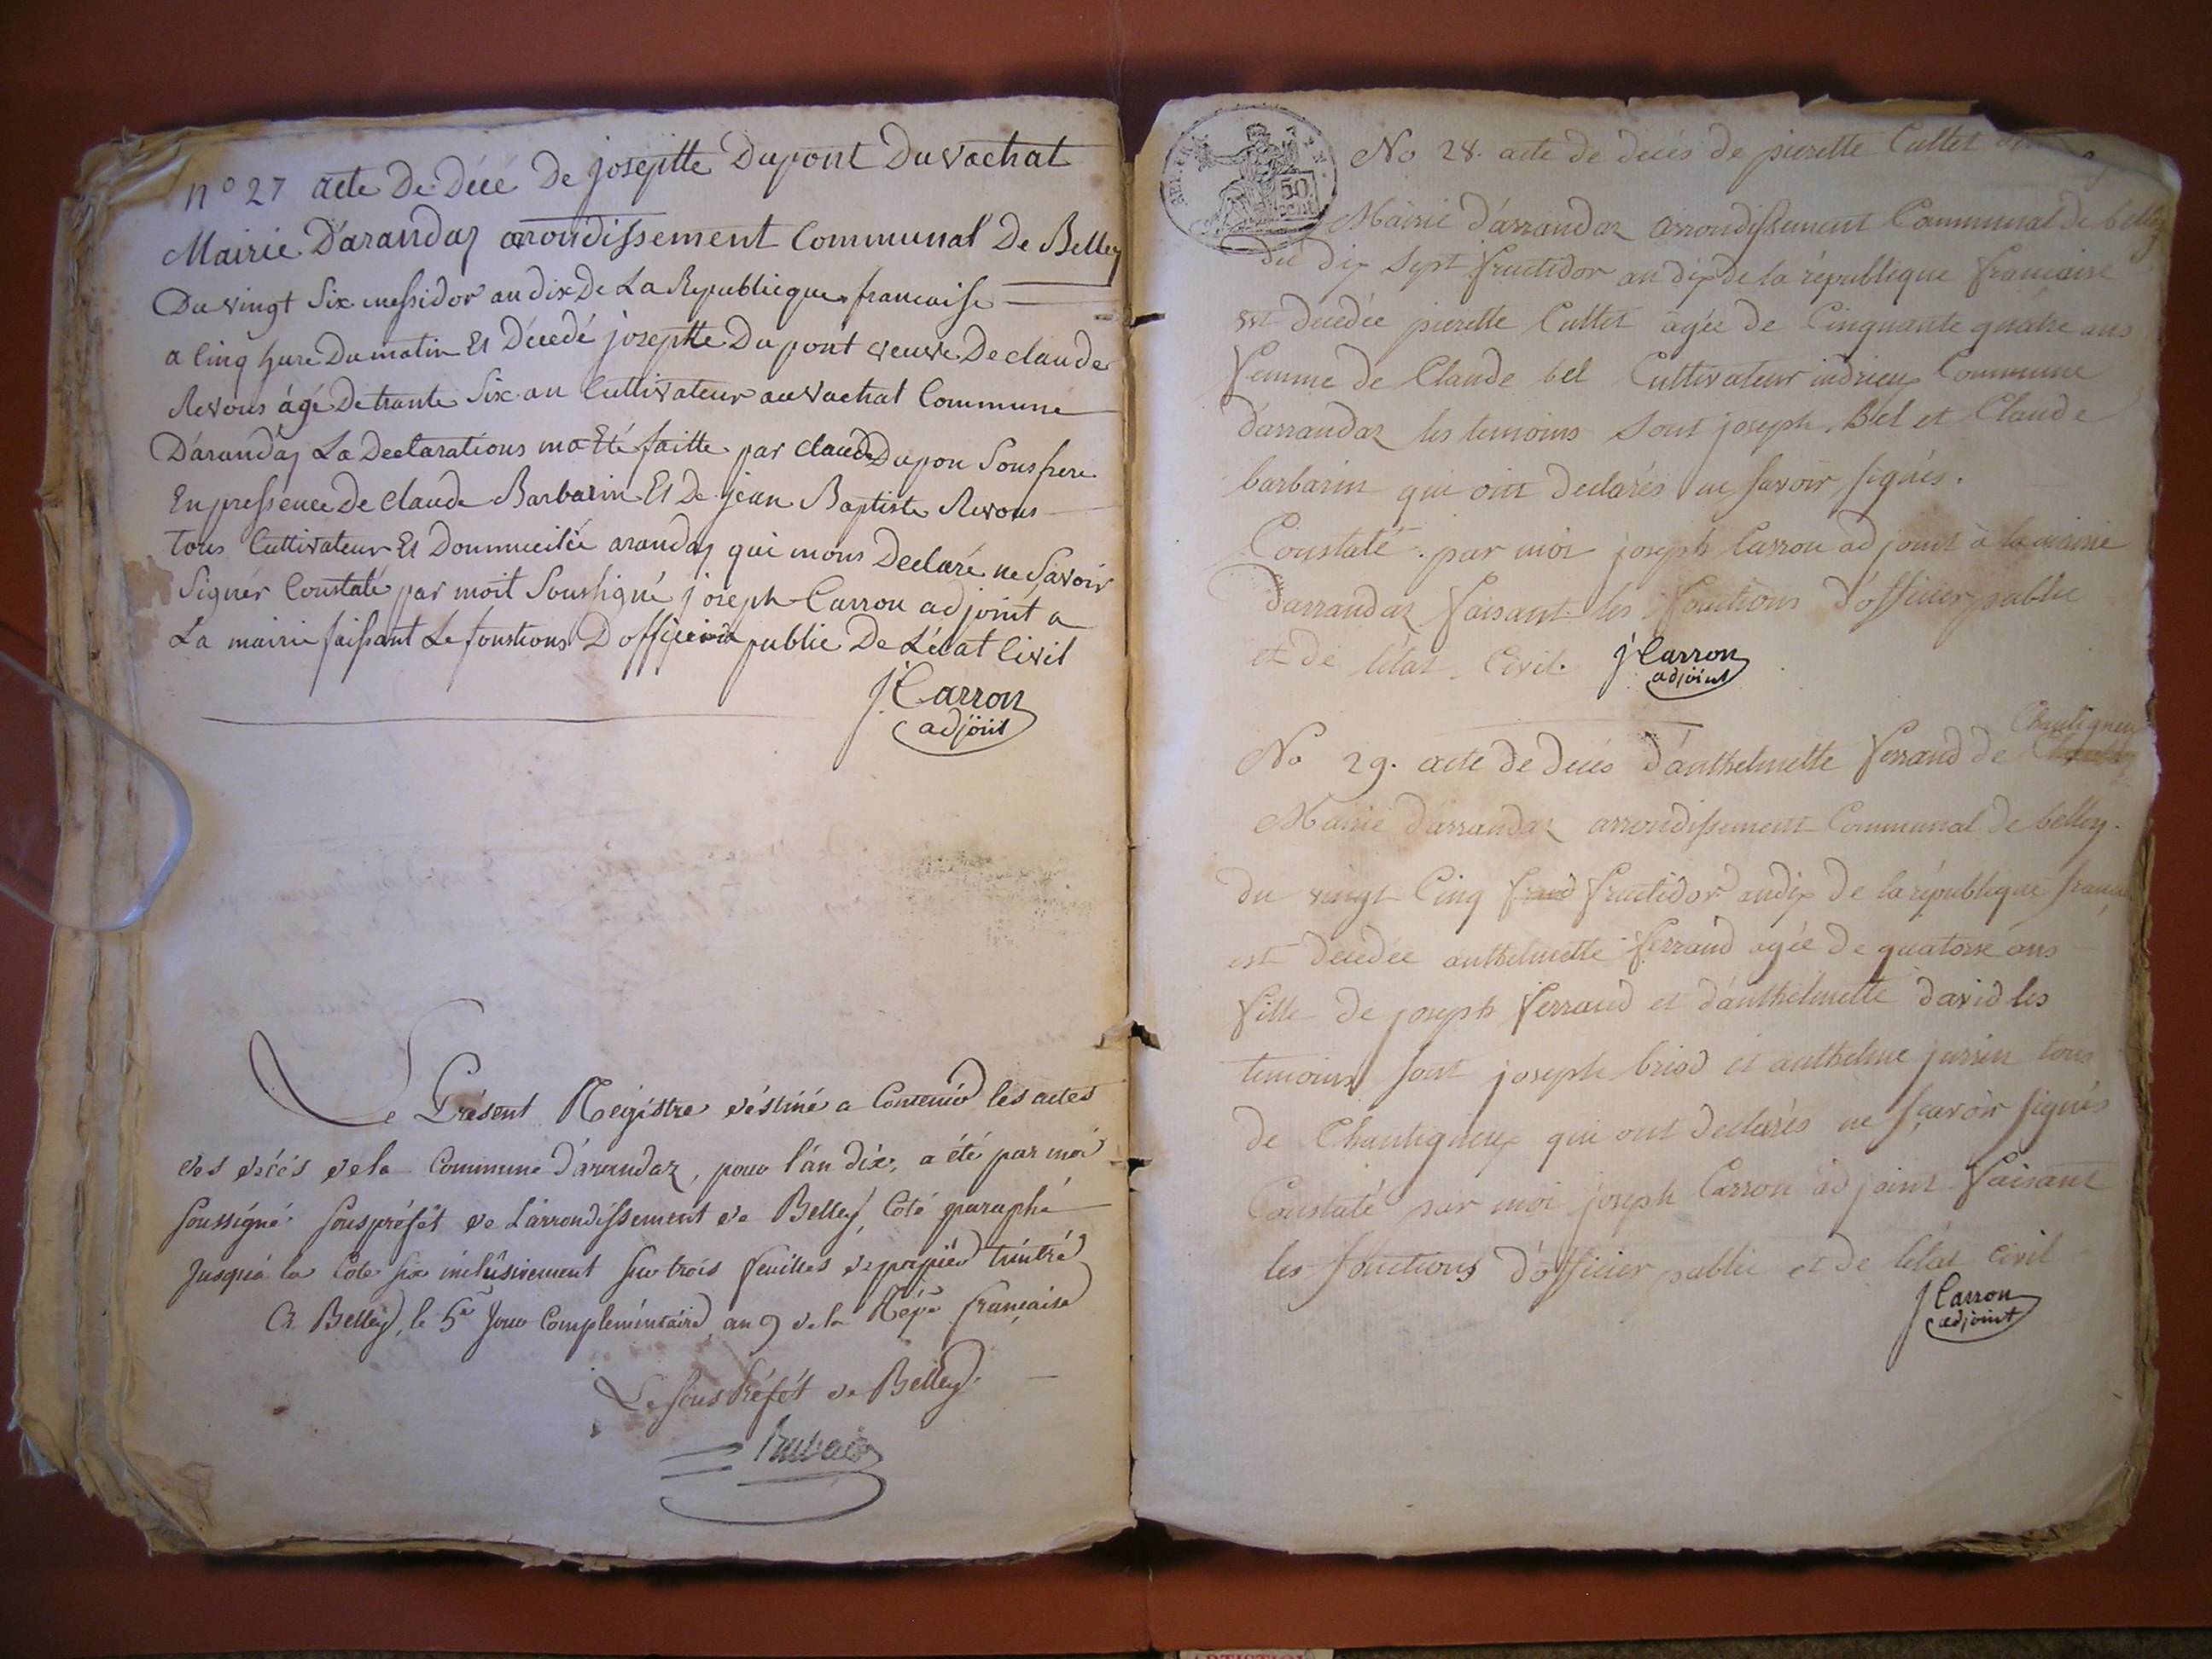 nº 27 acte De Décé De joseptte Dupont Du vachat
Mairie D'arandas arrondissement Communal De Belley
Du vingt Six messidor an dix De La Republicque francaise
a Cinq hure Du matin Et Décedé joseptte Dupont veuve De claude
Revous âgé De trante Six an Cultivateur au vachat Commune
D'arandas La Declarations ma Eté faitte par claude Dupon Sons frere
En pressence De Claude Barbarin Et De jean Baptiste Revous
tous Cultivateur Et Dommucilée arandas qui mons Declaré ne Savoir
Signér Constaté par moit Soussigné joseph Carron adjoint a
La mairie faissant Le fonstions D'officier public De L'état Civil
J. Carron
adjoit
Le Présent Registre déstiné a Contenir les actes
des décés de la Commune d'arandaz, pour l'an dix, a été par moi
soussigné souspréfét de L'arrondissement de Belley, Coté paraphé
jusqu'a la Cote six inclusivement sur trois feuilles de papier timbré
A Belley, le 5e jour Complémentaire an 9 de la Répe française
Le sous Préfét de Belley.
50
No 28. acte de decés de pierette Cultet
Mairie d'arrandaz arrondissement Communal de belley
du dix Sept fructidor an dix de la république francaise
est decedée pierette Cultet agée de Cinquante quatre ans
femme de Claude bel Cultivateur indrieux Commune
d'arrandaz les temoins Sont joseph Bel et Claude
barbarin qui ont declarés ne savoir signés.
Constaté par moi joseph Carron adjoint à la mairie
d'arrandaz faisant les fonctions d'officier public
et de l'état Civil. J Carron
adjoint
Chantigneux
No 29. acte de decés d'anthelmette ferrand de
Mairie d'arrandaz arrondissement Communal de belley.
du vingt Cinq fructidor an dix de la république
est decedée anthelmette ferrand agée de quatorse ans
fille de joseph ferrand et d'anthelmette david les
temoins sont joseph briod et anthelme jurrin tous
de Chantigneux qui ont declarés ne sçavoir signés
Constaté par moi joseph Carron adjoint faisant
les fonctions d'officier public et de l'état Civil
J Carron
adjoint